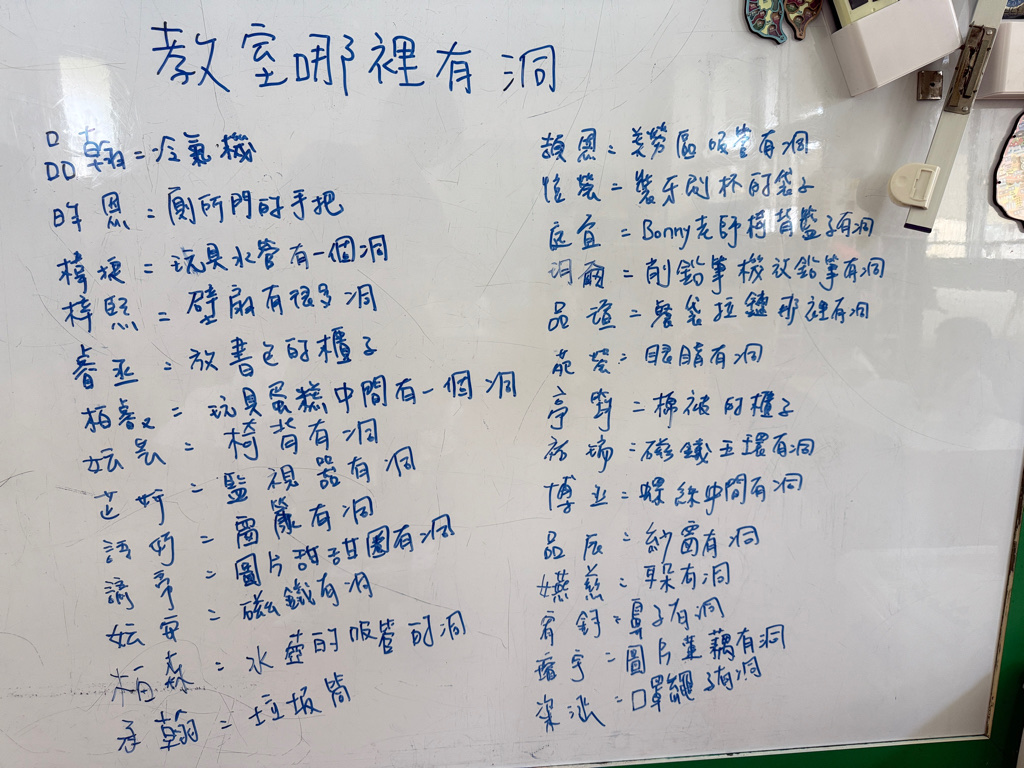 教室哪裡有洞
品翰=冷氣機
昨恩=廁所門的手把
樟捷=玩具水管有一個洞
梓熙=壁扇有很多洞
睿丞=放書包的櫃子
柏叡=玩具蛋糕中間有一個洞
妘昙=椅背有洞
芷妤=監視器有洞
語妍=窗簾有洞
=圖片甜甜圈有洞
妘安=磁鐵有洞
栢森=水壺的吸管的洞
承翰=垃圾筒
恩=美勞區吸管有洞
=裝牙刷杯的袋子
庭宜=Bonny老師椅背籃子有洞
玥爾=削鉛筆機放鉛筆有洞
品誼=餐袋拉鏈那裡有洞
=眼睛有洞
=棉被的櫃子
=磁鐵五環有洞
博=螺絲中間有洞
品辰=紗窗有洞
嬿慈=耳朵有洞
宥鈞=鼻子有洞
=圖片蓮藕有洞
=口罩繩子有洞